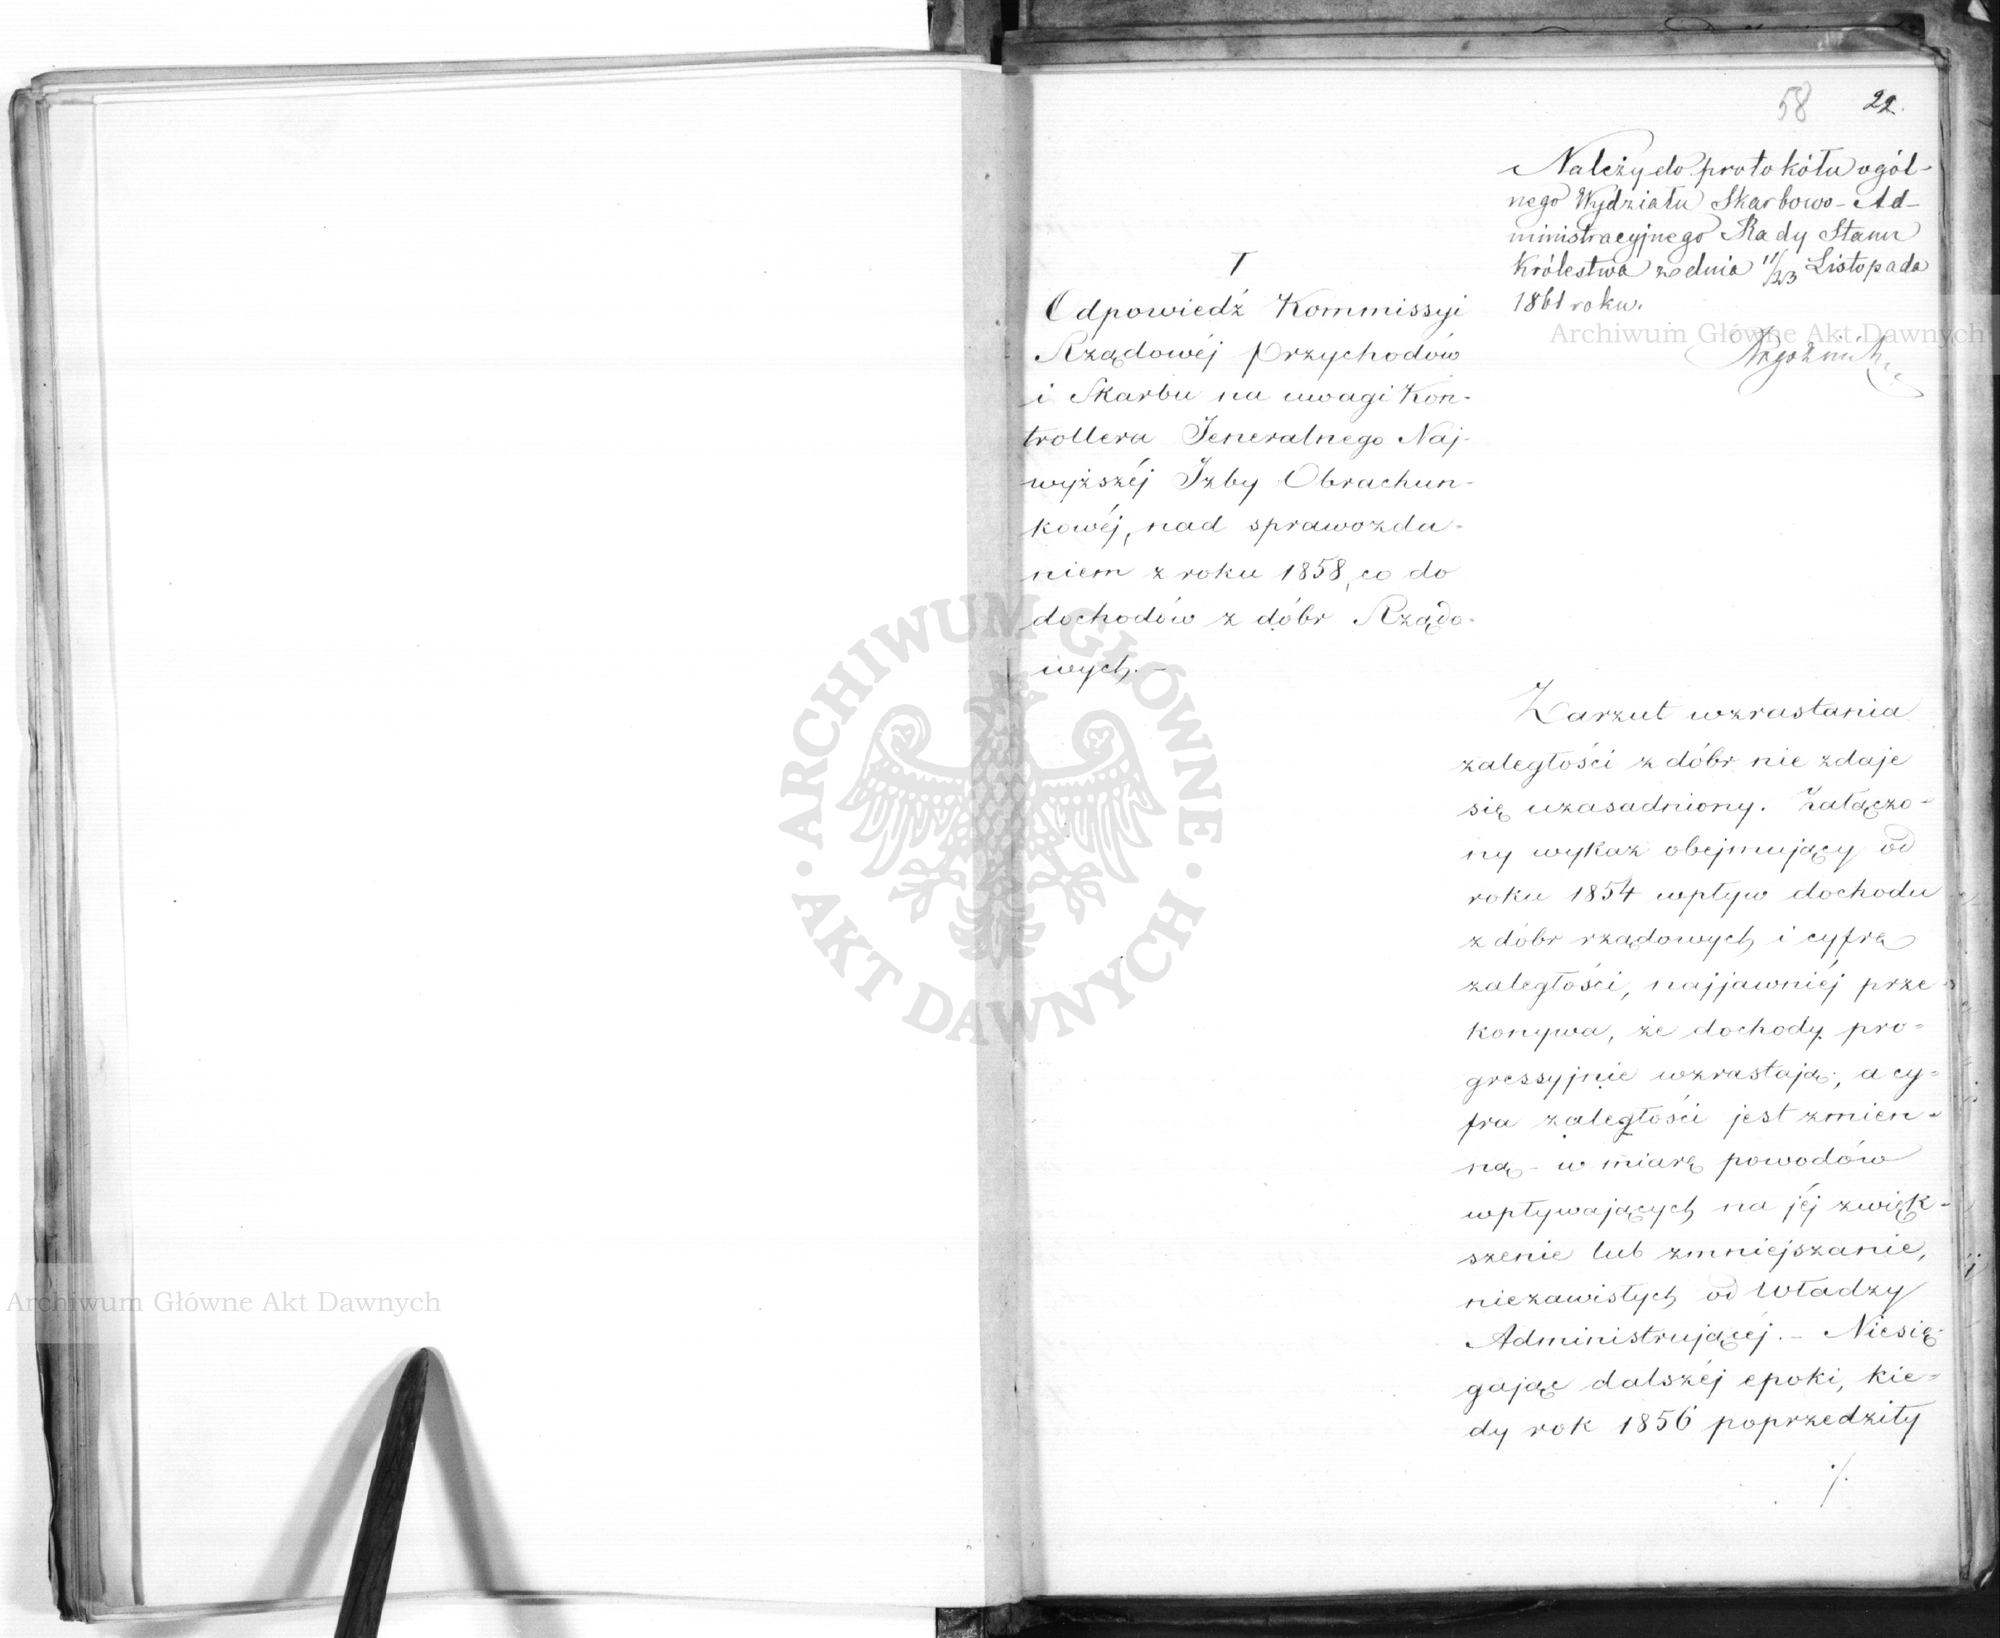 58 22.
Należy do protokółu ogól-
nego Wydziału Skarbowo-Ad-
ministracyjnego Rady Stanu
Królestwa z dnia 11/23 Listopada
1861 roku.
I
Odpowiedź Kommissyi
Rządowéj Przychodów
i Skarbu na uwagi Kon-
trollera Jeneralnego Naj-
wyższéj Izby Obrachun-
kowéj, nad sprawozda-
niem z roku 1858, co do
dochodów z dóbr Rządo-
wych.-
Zarzut wzrastania
zaległości z dóbr nie zdaje
się uzasadniony. Załączo-
ny wykaz obejmujący od
roku 1854 wpływ dochodu
z dóbr rządowych i cyfrę
zaległości, najjawniéj prze-
konywa, że dochody pro-
gressyjnie wzrastają, a cy-
fra zaległości jest zmien-
ną - w miarę powodów
wpływających na jéj zwięk-
szenie lub zmniejszanie,
niezawisłych od Władzy
Administrującéj. - Niesię-
gając dalszéj epoki, kie-
dy rok 1856 poprzedziły
./.
Archiwum Główne Akt Dawnych
ARCHIWUM GŁÓWNE
AKT DAWNYCH
Archiwum Główne Akt Dawnych